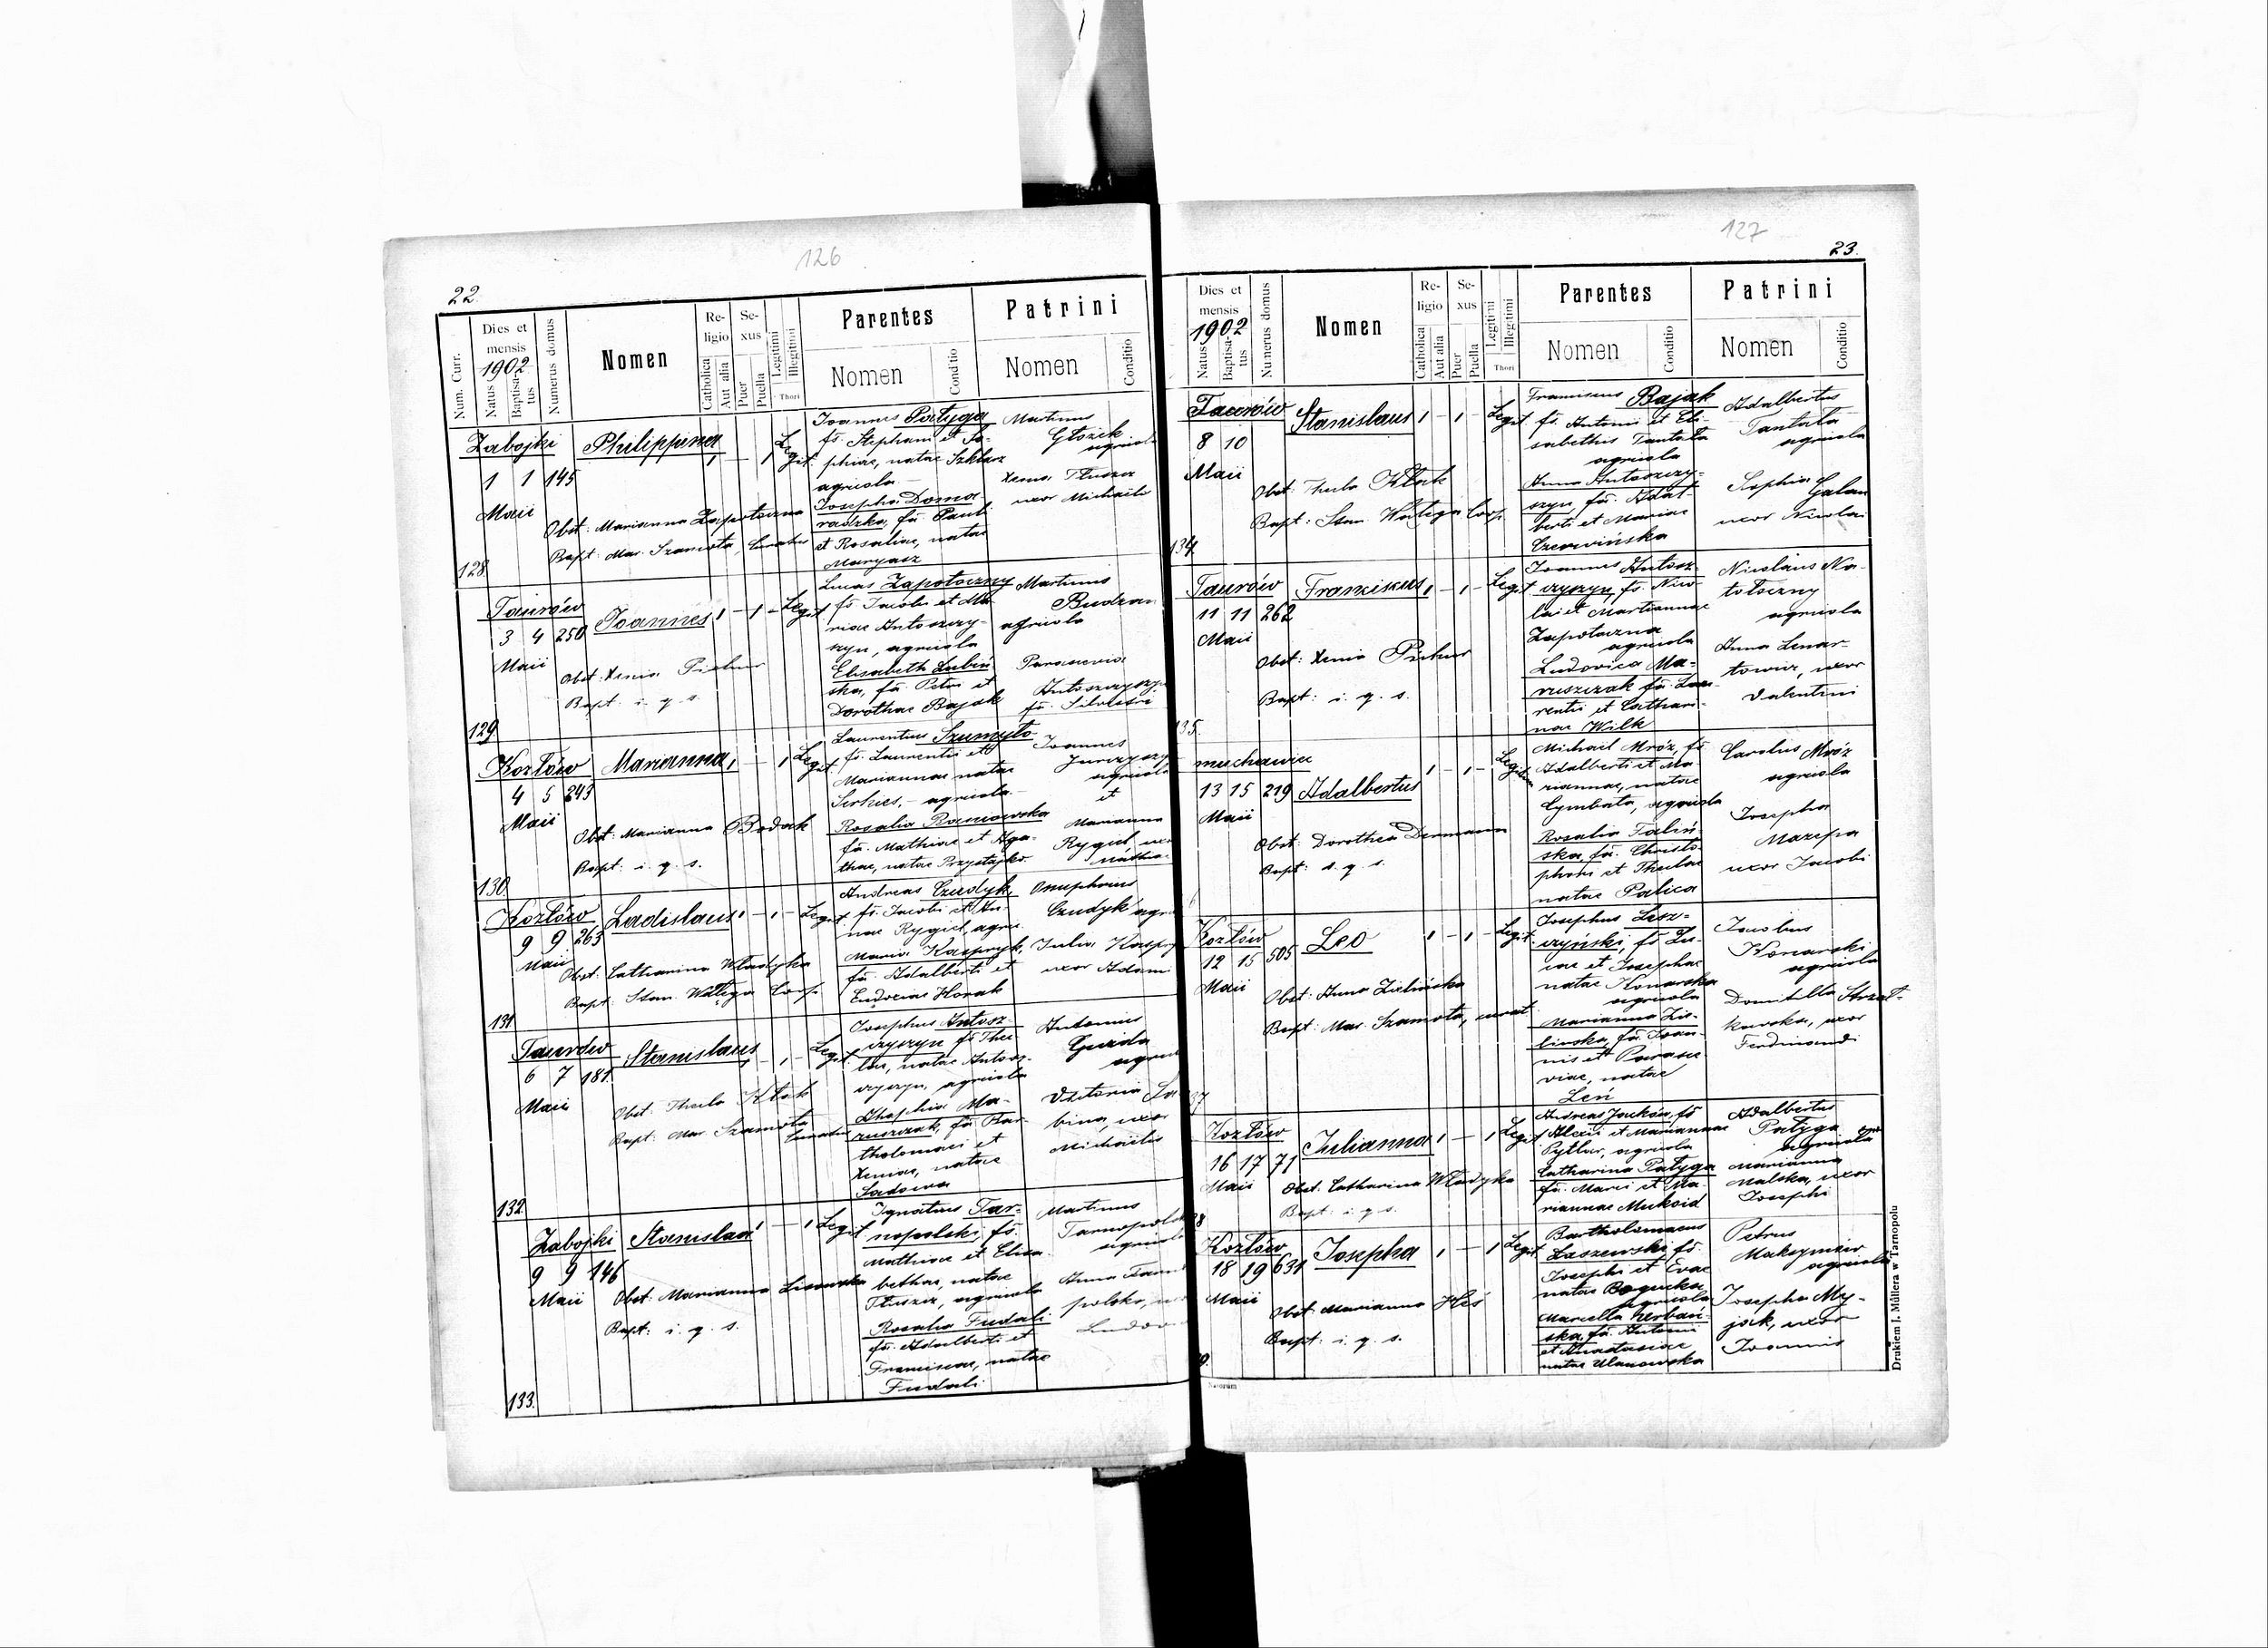 126
22.
Num. Curr.
Dies et mensis
1902
Natus
Baptisatus
Numerus domus
Nomen
Religio
Catholica
Aut alia
Sexus
Puer
Puella
Legitimi
Illegitimi
Thori
Parentes
Nomen
Conditio
Patrini
Nomen
Conditio
Zabojki
Philippina
1 1 145
Maii
Obst: Marianna Zapotoczna
Bapt: Mar. Szamota, Curatus
128
Legit.
Joannes Patyga
fs. Stephani et So-
phiae, natae Szklarz
agricola
Josepha Doma-
radzka, fa Pauli
et Rosaliae, natae
Maryasz
Martinus
Głozek
agricola
Xenia Tłuszcz
uxor Michaelis
Taurów
Joannes
3 4 250
Maii
Obst: Xenia Pichur
Bapt: i. q. s.
129
Legit.
Lucas Zapotoczny
fs Jacobi et Ma-
riae Antoszczy-
szyn, agricola
Elisabeth Lubiń
ska, fa. Petri et
Dorothae Bajak
Martinus
Budzan
agricola
Parascevia
Antoszczyszyn
fa. Silvestri
Kozłów
Marianna
4 5 243
Maii
Obst: Marianna Bodak
Bapt: i. q. s.
130
Legit.
Laurentius Szumyło
fs. Laurentii et
Mariannae natae
agricola
Rosalia
fa. Mathiae et Aga-
thae, natae Przystajko
Joannes
agricola
et
Marianna
Rygiel, uxor
Kozłów
Ladislaus
9 9 263
Maii
Obst: Catharina Władyka
Bapt: Stan. Wałęga Coop.
131
Legit.
Andreas Czudyk,
fs. Jacobi et An-
nae Rygiel, agric.
Maria Kasprzyk,
fa. Adalberti et
Eudociae Horak
Onuphrius
Czudyk agri
Julia Kaspr
uxor Adami
Taurów
Stanislaus
6 7 181.
Maii
Obst: Thecla Kłak
Bapt: Mar. Szamota
Curatus
132
Legit.
Josephus Antosz-
czyszyn fs Thec
lae, natae Antosz-
czyszyn, agricola
Zhophia Ma-
ruszczak, fa. Bar-
tholomaei et
Xeniae, natae
Sadowa
Antonius
Guzda
agricol
Victoria
bina, uxor
Michaelis
Zabojki
Stanislaa
9 9 146
Maii
Obst: Marianna Lisowska
Bapt: i. q. s.
133.
Legit
Ignatius Tar-
nopolski, fs.
Mathiae et Elisa-
bethae, natae
Tłuszcz, agricola
Rosalia Fudali
fa. Adalberti et
Franciscae, natae
Fudali
Martinus
Tarnopolski
agricola
Anna Tarno
polska,
Ludov
127
23.
Dies et mensis
1902
Natus
Baptisatus
Numerus domus
Nomen
Religio
Catholica
Aut alia
Sexus
Puer
Puella
Legitimi
Illegitimi
Thori
Parentes
Nomen
Conditio
Patrini
Nomen
Conditio
Taurów
Stanislaus
8 10
Maii
Obst: Thecla Kłak
Bapt: Stan Wałęga Coop.
134
Legit
Franciscus Bajak
fs. Antonii et Eli-
sabethis Tantala
agricola
Anna Antoszczy-
szyn, fa. Adal-
berti et Mariae
Czerwińska
Adalbertus
Tantala
agricola
Sophia Galan
uxor Nicolai
Taurów
Franciscus
11 11 262
Maii
Obst: Xenia Pichur
Bapt: i. q. s.
135.
Legit
Joannes Antosz-
czyszyn, fs. Nico
lai et Mariannae
Zapotoczna
agricola
Ludovica Ma-
ruszczak fa. Lau-
rentii et Cathari-
nae Wilk
Nicolaus Na-
totoczny
agricola
Anna Lenar-
towicz, uxor
Valentini
muchawiec
Adalbertus
13 15 219
Maii
Obst: Dorothea Denmann
Bapt: i. q. s.
Legit
Michael Mróz, fs
Adalberti et Ma-
riannae, natae
Cymbała, agricola
Rosalia Faliń-
ska, fa. Christo-
phori et Theclae
natae Palica
Carolus Mróz
agricola
Josepha
Mazepa
uxor Jacobi
Kozłów
Leo
12 15 505
Maii
Obst: Anna Zielińska
Bapt: Mar. Szamota, curat.
Legit.
Josephus Lesz-
czyński, fs Lu-
cae et Josephae
natae Konarska
agricola
Marianna Zie-
linska, fa. Joan-
nis et Parasce
viae, natae
Leń
Jacobus
Konarski
agricola
Domitilla Strzał-
kowska, uxor
Ferdinandi
Kozłów
Julianna
16 17 71
Maii
Obst: Catharina Władyka
Bapt: i. q. s.
Legit
Andreas Jacków, fs
Alexii et Mariannae
Pytlar, agricola
Catharina Patyga
fa. Marci et Ma-
riannae Mukoid
Adalbertus
Patyga
agricola
Marianna
Malska, uxor
Josephi
Kozłów
Josepha
18 19 631
Maii
Obst: Marianna Hes
Bapt: i. q. s.
Legit.
Bartholomaeus
Łaszewski, fs.
Josephi et Evae
natae Bogucka
agricola
Mariella Herbań-
ska, fa. Antonii
et Anastasiae
natae Ulanowska
Petrus
Maksymów
agricola
Josepha My-
jak, uxor
Joannis
Drukiem J. Müllera w Tarnopolu